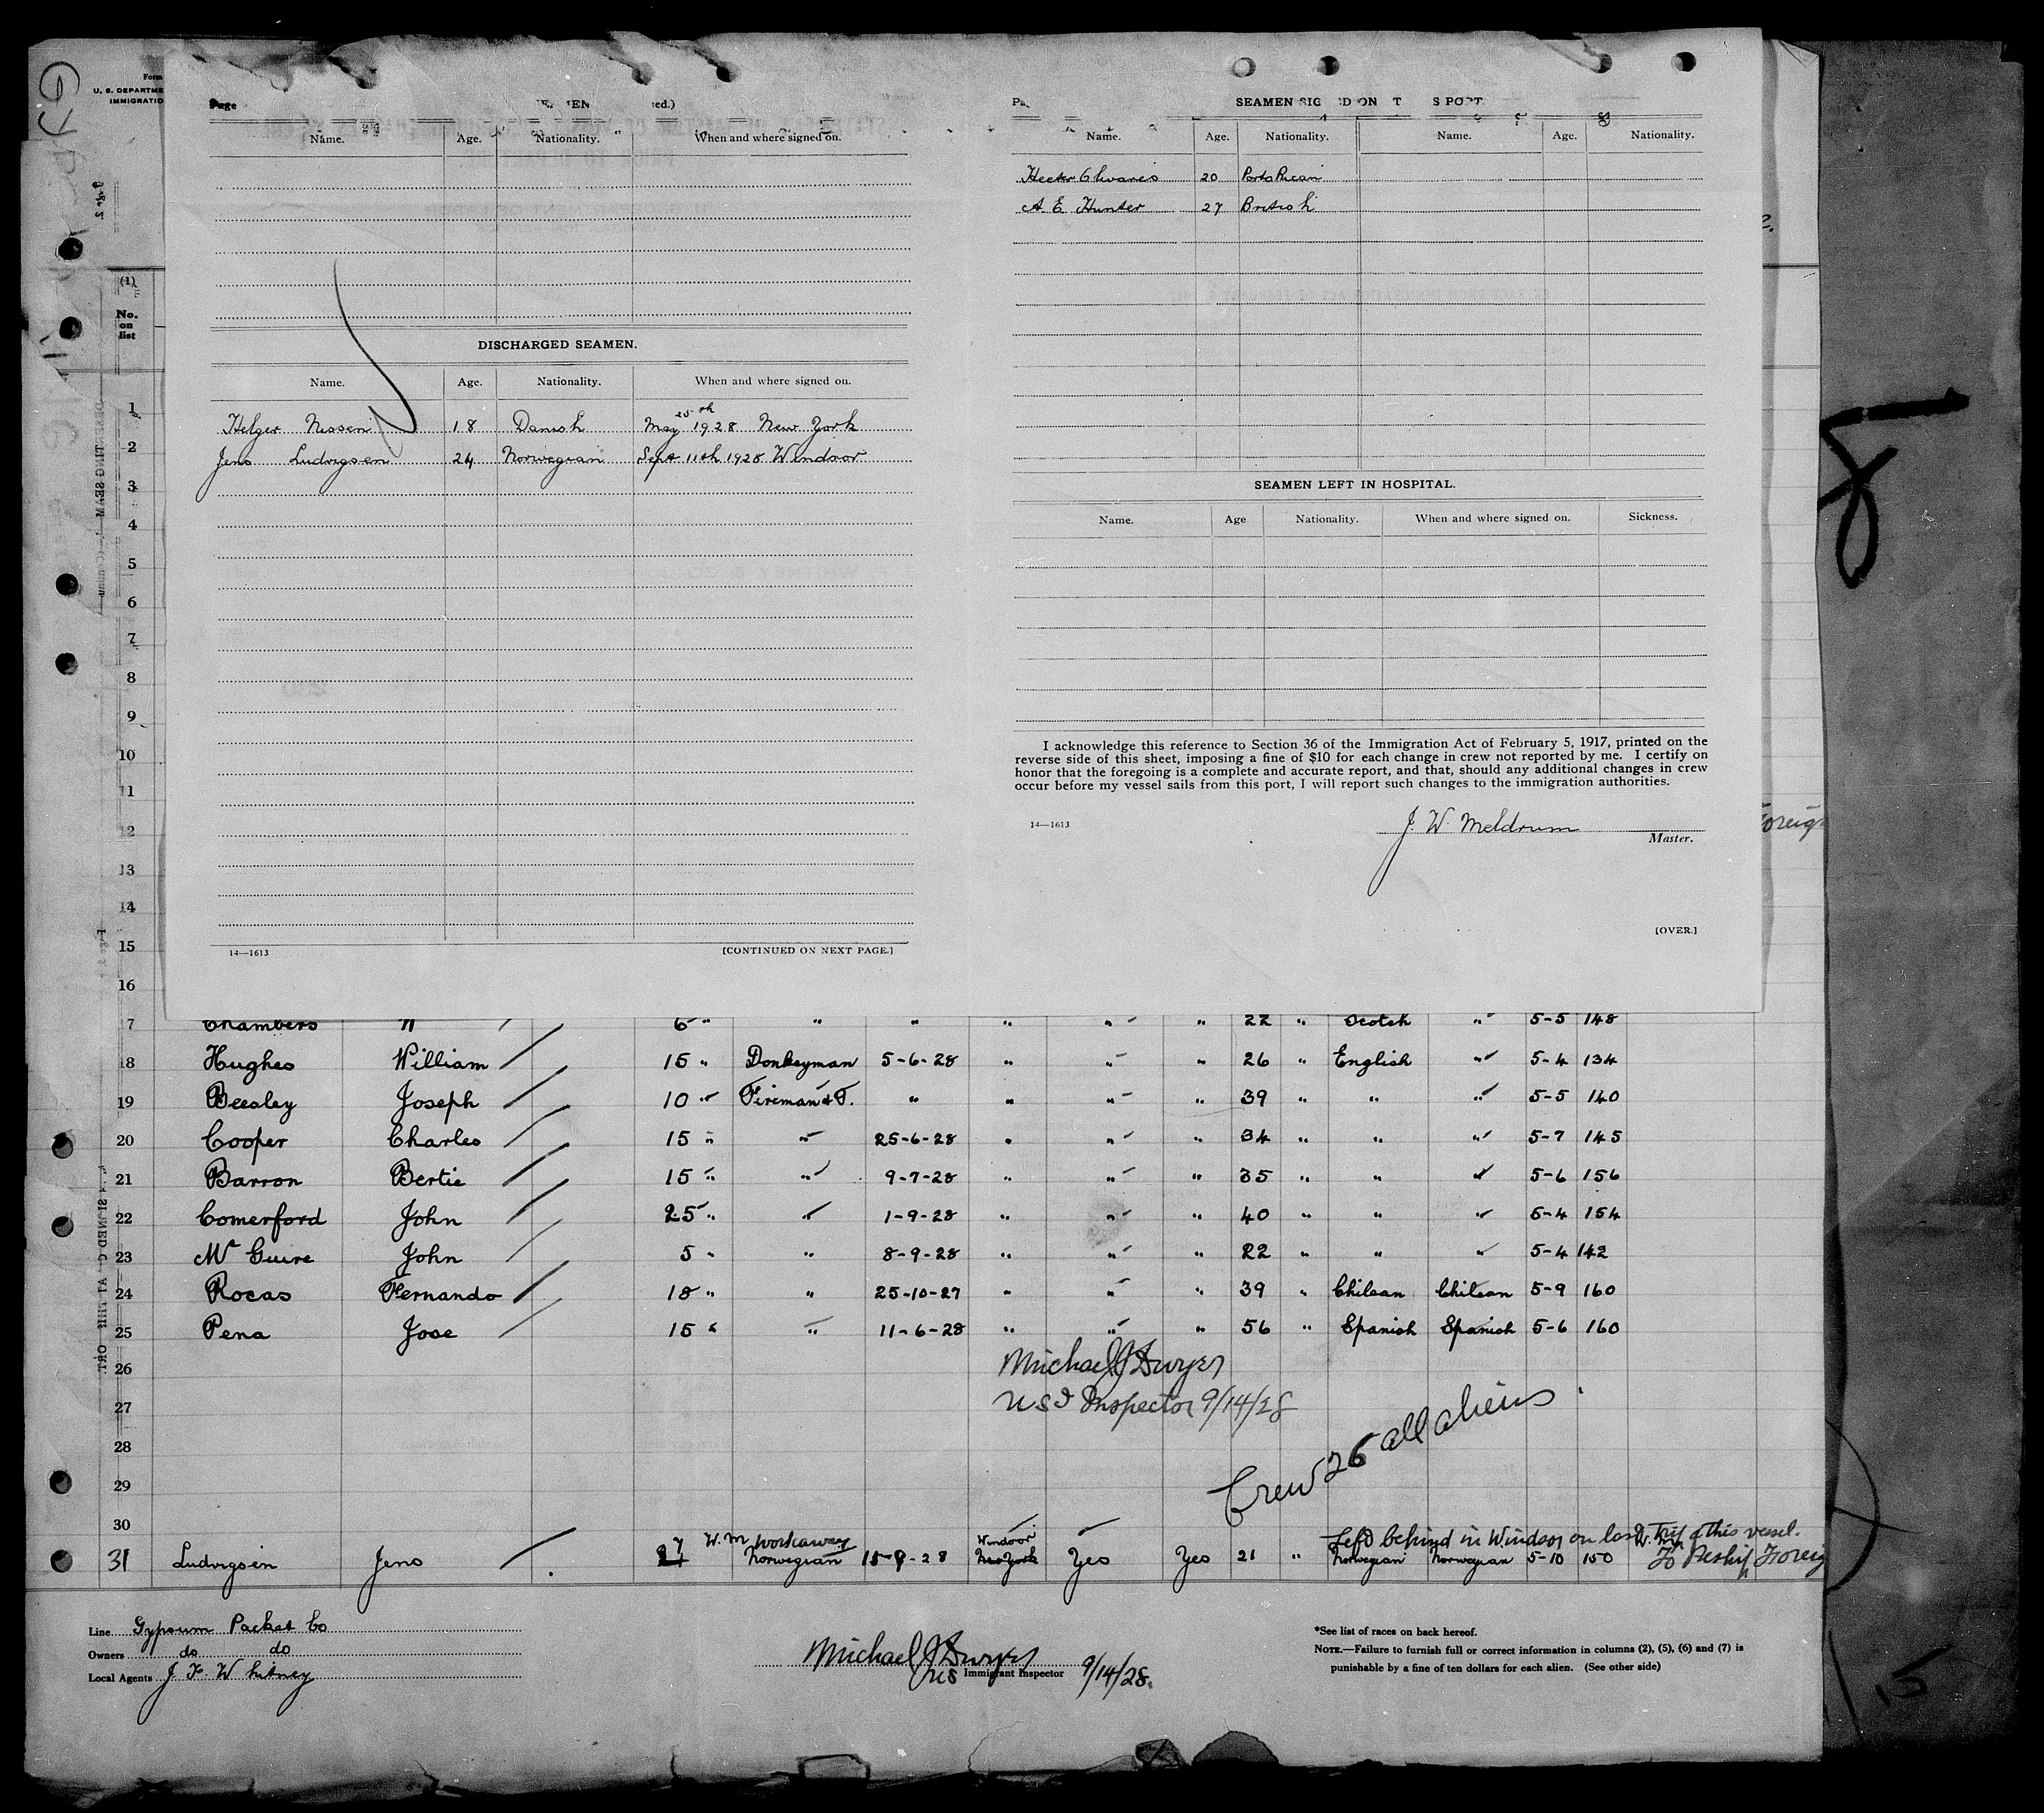 Form
U. S. DEPARTME
IMMIGRATIO
(1)
No.
on
list
Page
ed.)
Name. Age. Nationality. When and where signed on.
DISCHARGED SEAMEN.
Name. Age. Nationality. When and where signed on.
Helger Nissen 18 Danish May 25th 1928 New York
Jens Ludvigsen 24 Norwegian Sept 11th 1928 Windsor
14—1613 [CONTINUED ON NEXT PAGE.]
SEAMEN SIG D ON T S PORT.
Name. Age. Nationality. Name. Age. Nationality.
Hector 20 Porto Rican
A. E. Hunter 27 British
SEAMEN LEFT IN HOSPITAL.
Name. Age Nationality. When and where signed on. Sickness.
I acknowledge this reference to Section 36 of the Immigration Act of February 5, 1917, printed on the
reverse side of this sheet, imposing a fine of $10 for each change in crew not reported by me. I certify on
honor that the foregoing is a complete and accurate report, and that, should any additional changes in crew
occur before my vessel sails from this port, I will report such changes to the immigration authorities.
14—1613
J. W. Meldrum
Master.
[OVER.]
1
2
3
4
5
6
7
8
9
10
11
12
13
14
15
16
17 Chambers 6 " " " " " " 22 " Scotch " 5-5 148
18 Hughes William 15 " Donkeyman 5-6-28 " " " 26 " English " 5-4 134
19 Beesley Joseph 10 " Fireman & T. " " " " 39 " " " 5-5 140
20 Cooper Charles 15 " " 25-6-28 " " " 34 " " " 5-7 145
21 Barron Bertie 15 " " 9-7-28 " " " 35 " " " 5-6 156
22 Comerford John 25 " " 1-9-28 " " " 40 " " " 5-4 154
23 Mc Guire John 5 " " 8-9-28 " " " 22 " " " 5-4 142
24 Rocas Fernando 18 " " 25-10-27 " " " 39 " Chilean Chilean 5-9 160
25 Pena Jose 15 " " 11-6-28 " " " 56 " Spanish Spanish 5-6 160
26 Michael J Dwyer
27 US I Inspector 9/14/28
28
29
Crew 26 all aliens
30
Left behind in Windsor on last trip of this vessel.
31 Ludvigsen Jens W. M. workaway Norwegian 15-9-28 Windsor New York Yes Yes 21 " Norwegian Norwegian 5-10 150 To Reship Foreig
Line Gypsum Packet Co
Owners do do
Local Agents J F Whitney
Michael J Dwyer
US Immigrant Inspector 9/14/28.
*See list of races on back hereof.
NOTE.—Failure to furnish full or correct information in columns (2), (5), (6) and (7) is
punishable by a fine of ten dollars for each alien. (See other side)